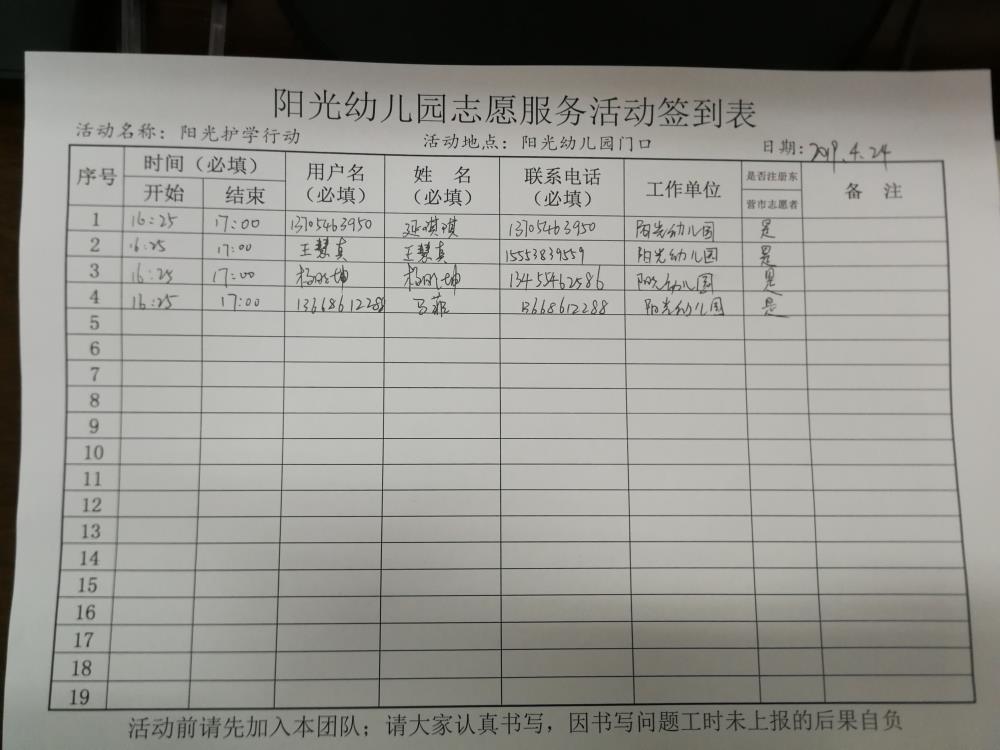 阳光幼儿园志愿服务活动签到表
活动名称：阳光护学行动 活动地点：阳光幼儿园门口 日期：2019.4.24
序号 时间（必填） 用户名（必填） 姓 名（必填） 联系电话（必填） 工作单位 是否注册东营市志愿者 备 注
开始 结束
1 16:25 17:00 13705463950 延琪琪 13705463950 阳光幼儿园 是
2 16:25 17:00 王慧真 王慧真 15553839559 阳光幼儿园 是
3 16:25 17:00 杨坤 杨坤 13455462586 阳光幼儿园 是
4 16:25 17:00 13668612288 马菲 13668612288 阳光幼儿园 是
5
6
7
8
9
10
11
12
13
14
15
16
17
18
19
活动前请先加入本团队；请大家认真书写，因书写问题工时未上报的后果自负